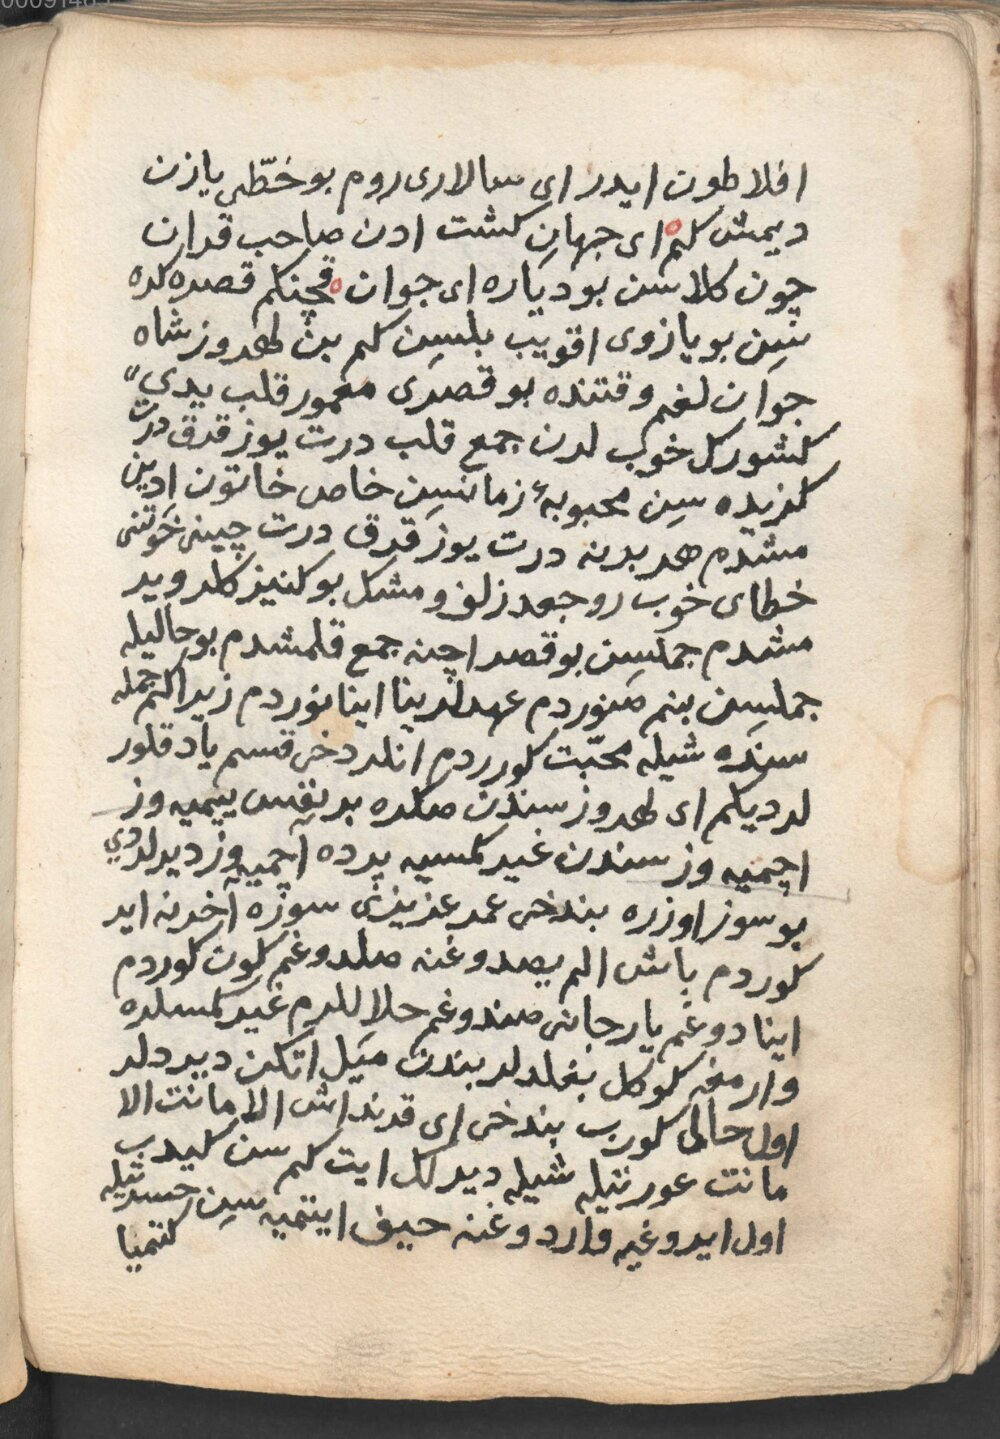 افلاطون ایدر ای سالاری روم بو خطّی یازن
دیمش کم ای جهان کشت ادن صاحب قران
چون کلاسن بو دیاره ای جوان قچنکم قصره کله
سن بو یازوی اقویب بلسن کم بن طهروز شاه
جوان لغم وقتنده بو قصری معمور قلب یدی
کشورکل خوب لرن جمع قلب درت یوز قرق درت
کزیده سن محبوبهٔ زماننسن خاص خاتون ادین
مشدم هر برینه درت یوز قرق درت چینی خوتنی
خطای خوب رو جعد زلف و مشکل بو کنیزکلر ویر
مشدم جملسن بو قصر اچنه جمع قلمشدم بو حالیله
جملسن بنم صنوردم عهدلرینا اینانوردم زیرا کم جمله
سنده شیله محبّت کورردم انلر دخی قسم یاد قلور
لر دیکم ای طهروز سندن صکره بر نفس ییمیه وز
اچمیه وز سندن غیر کمسیه پرده آچمیه وز دیرلردی
بو سوز اوزره بندخی عمر عزیزی سوزه آخرنه ایر
کوردم باش الم یصدوغنه صلدوغم کون کوردم
اینادوغم یار جانی صندوغم حلاللرم غیر کمسلره
وارمغه کوکل بغلدلر بندن میل اتکن دیردلر
اول حالی کورب بندخی ای قرنداش الامانت الا
مانت عورتیله شیله دیرلک ایت کم سن کیدب
اول ایردوغیه واردوغنه حیف ایتمیه سن حسرتیله
کتمیا